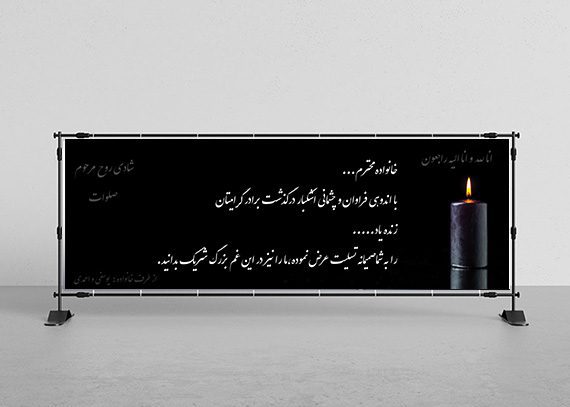 انالله و اناالیه راجعون
خانواده محترم...
با اندوهی فراوان و چشمانی اشکبار درگذشت برادر گرامیتان
زنده یاد.....
را به شما صمیمانه تسلیت عرض نموده، ما را نیز در این غم بزرگ شریک بدانید.
شادی روح مرحوم
صلوات
از طرف خانواده: یوسفی و احمدی